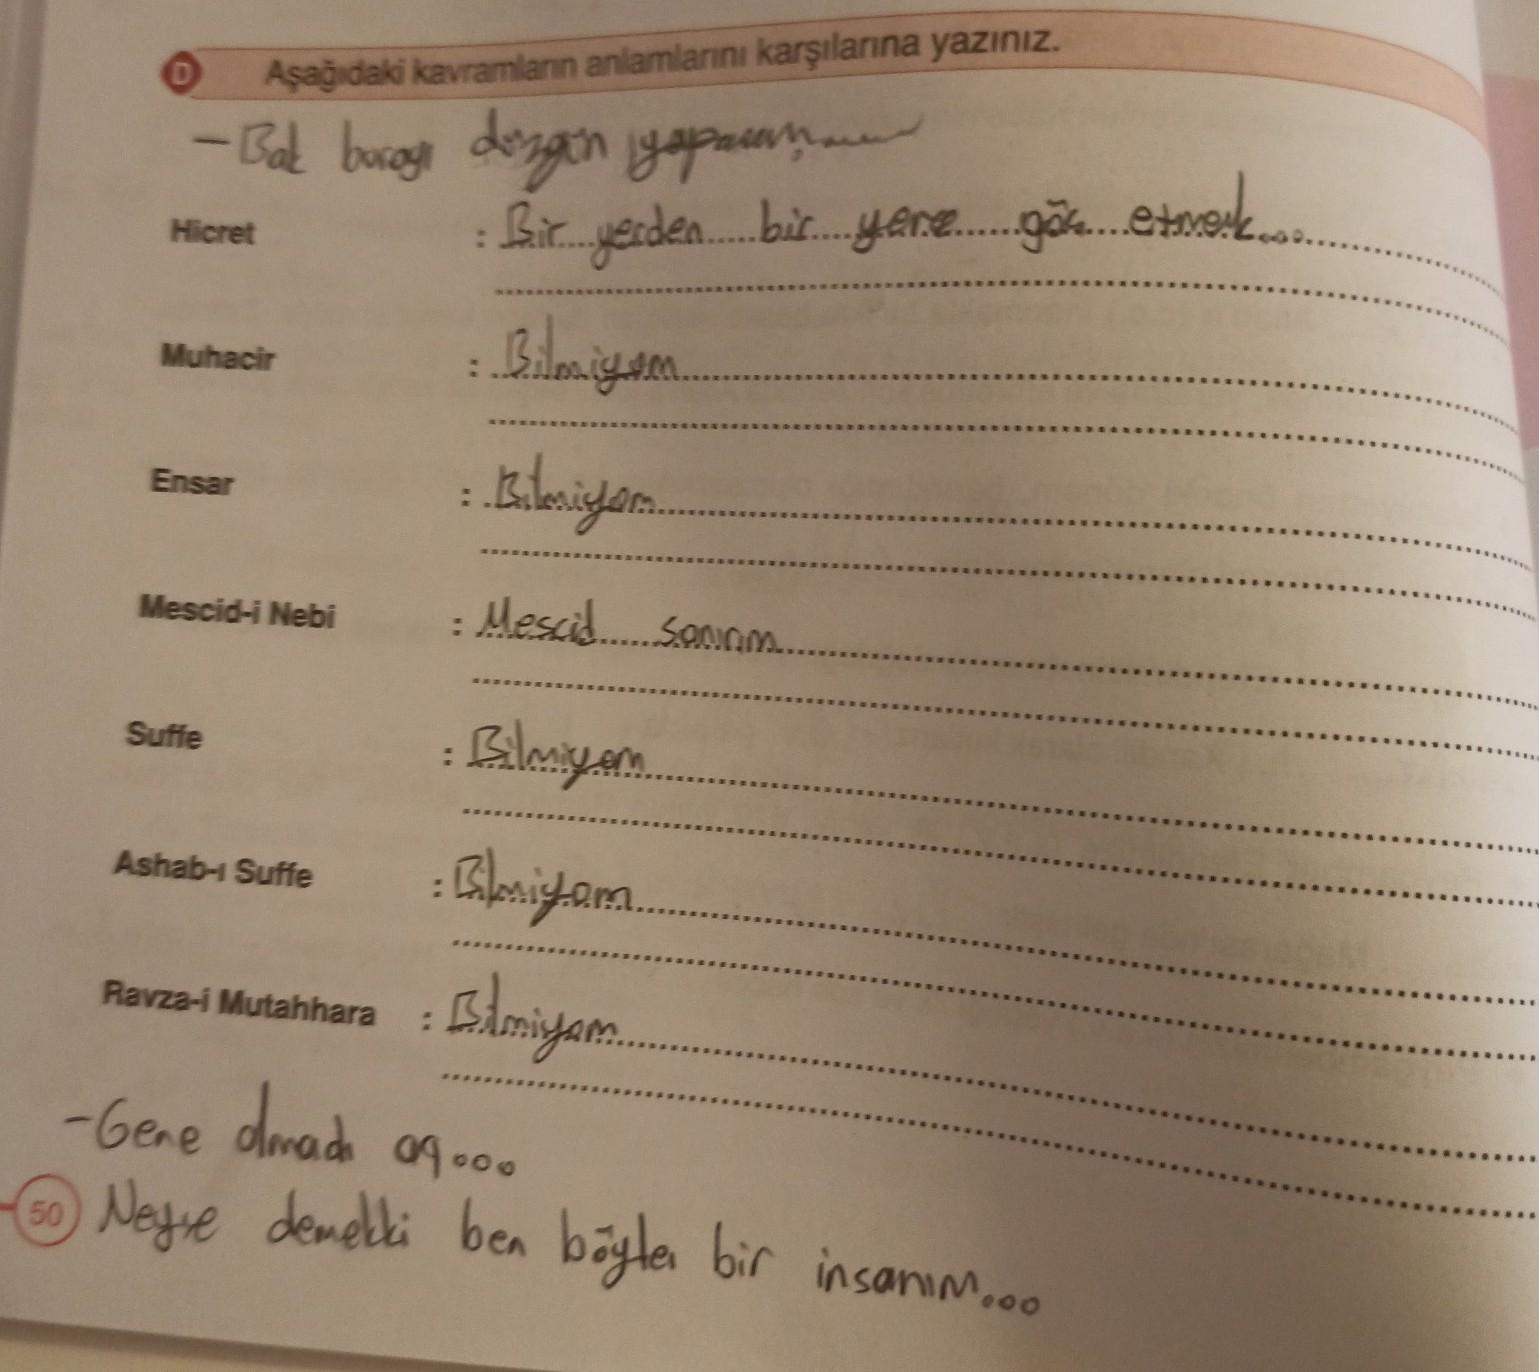 D Aşağıdaki kavramların anlamlarını karşılarına yazınız.
- Bak burayı düzgün yapacam
Hicret : Bir yerden bir yere göç etmek...
Muhacir : Bilmiyom
Ensar : Bilmiyom
Mescid-i Nebi : Mescid sanırım
Suffe : Bilmiyom
Ashab-ı Suffe : Bilmiyom
Ravza-i Mutahhara : Bilmiyom
- Gene olmadı aq...
50 Neyse demekki ben böyle bir insanım...